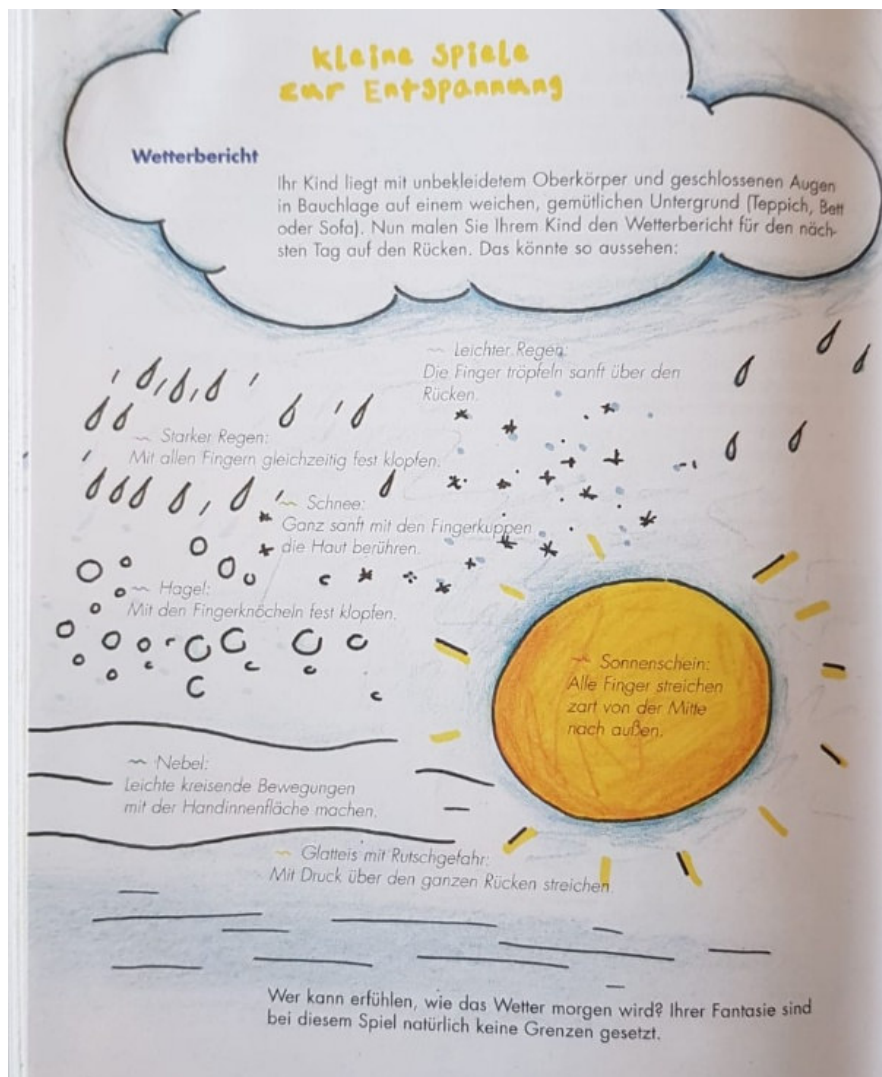 Kleine Spiele
zur Entspannung
Wetterbericht
Ihr Kind liegt mit unbekleidetem Oberkörper und geschlossenen Augen
in Bauchlage auf einem weichen, gemütlichen Untergrund (Teppich, Bett
oder Sofa). Nun malen Sie Ihrem Kind den Wetterbericht für den näch-
sten Tag auf den Rücken. Das könnte so aussehen:
~ Leichter Regen:
Die Finger tröpfeln sanft über den
Rücken.
~ Starker Regen:
Mit allen Fingern gleichzeitig fest klopfen.
~ Schnee:
Ganz sanft mit den Fingerkuppen
die Haut berühren.
~ Hagel:
Mit den Fingerknöcheln fest klopfen.
~ Sonnenschein:
Alle Finger streichen
zart von der Mitte
nach außen.
~ Nebel:
Leichte kreisende Bewegungen
mit der Handinnenfläche machen.
~ Glatteis mit Rutschgefahr:
Mit Druck über den ganzen Rücken streichen.
Wer kann erfühlen, wie das Wetter morgen wird? Ihrer Fantasie sind
bei diesem Spiel natürlich keine Grenzen gesetzt.